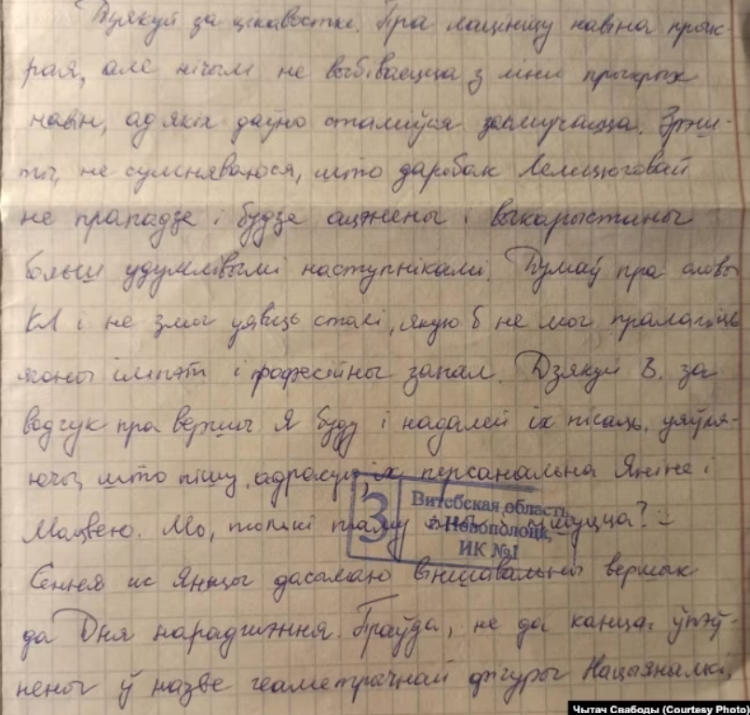 Дзякуй за цікавосткі. Пра лацінку навіна прык-
рая, але нічым не выбіваецца з лініі прыкрых
навін, ад якіх даўно стаміўся засмучацца.
не сумняваюся, што даробак Лемцюговай
не прападзе і будзе ацэнены і выкарыстаны
больш удумлівымі наступнікамі. Думаў пра словы
КЛ і не змог уявіць сталі, якую б не мог прапаліць
ягоны імпэт і прафесійны запал. Дзякуй В. за
водгук пра вершы. Я буду і надалей іх пісаць, уяўля-
ючы, што пішу, адрасую іх персанальна Яніне і
Мацвею. Мо, толькі таму пішуцца?
Сёння ж Янцы дасылаю віншавальны вершык
да Дня нараджэння. Праўда, не да канца ўпэў-
нены ў назве геаметрычнай фігуры Нацыянальнай,
3
Витебская область,
г. Новополоцк,
ИК №1
Чытач Свабоды (Courtesy Photo)